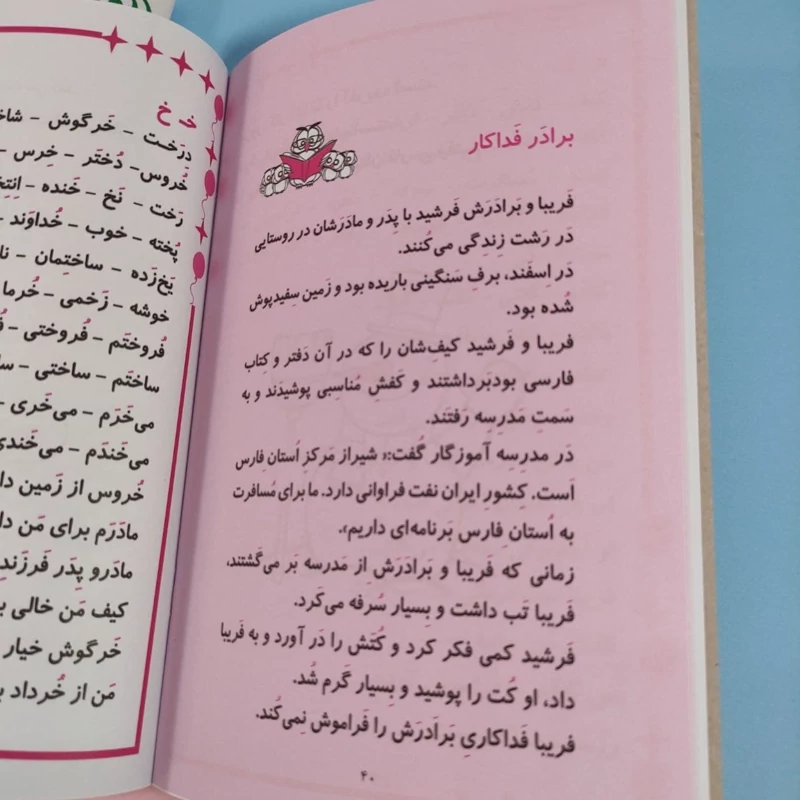 برادَر فَداکار
فَریبا و بَرادَرَش فَرشید با پِدَر و مادَرَشان در روستایی
دَر رَشت زِندِگی می‌کُنند.
دَر اِسفَند، برفِ سَنگینی باریده بود و زَمین سِفیدپوش
شُده بود.
فریبا و فَرشید کیف‌شان را که در آن دَفتر و کِتاب
فارسی بودبَرداشتند و کَفشِ مُناسِبی پوشیدَند و به
سَمتِ مَدرِسه رَفتَند.
دَر مدرِسِه آموزگار گُفت:« شیراز مَرکزِ اُستان فارس
اَست. کِشورِ ایران نفت فراوانی دارد. ما برای مُسافرت
به اُستان فارس بَرنامه‌ای داریم».
زمانی که فَریبا و بَرادَرَش از مَدرسه بَر می‌گشتند،
فَریبا تَب داشت و بِسیار سُرفه می‌کَرد.
فَرشید کمی فکر کرد و کُتَش را دَر آورد و به فَریبا
داد، او کُت را پوشید و بِسیار گَرم شُد.
فَریبا فَداکاریِ بَرادَرَش را فَراموش نِمی‌کُند.
۴۰
خـ خ
دِرَخت – خَرگوش –
خُروس– دُختَر – خِرس –
رَخت – نَخ – خَنده –
پُخته – خوب – خُداوَند –
یَخ‌زَده – ساختِمان –
خوشه – زَخمی – خُرما
فُروختَم – فُروختی –
ساختَم – ساختی –
می‌خَرَم – می‌خَری –
می‌خَندَم – می‌خَندی
خُروس از زَمین
مادَرَم برای مَن
مادَرو پِدَر فَرزَند
کیف مَن خالی
خَرگوش خیار
مَن از خُرداد